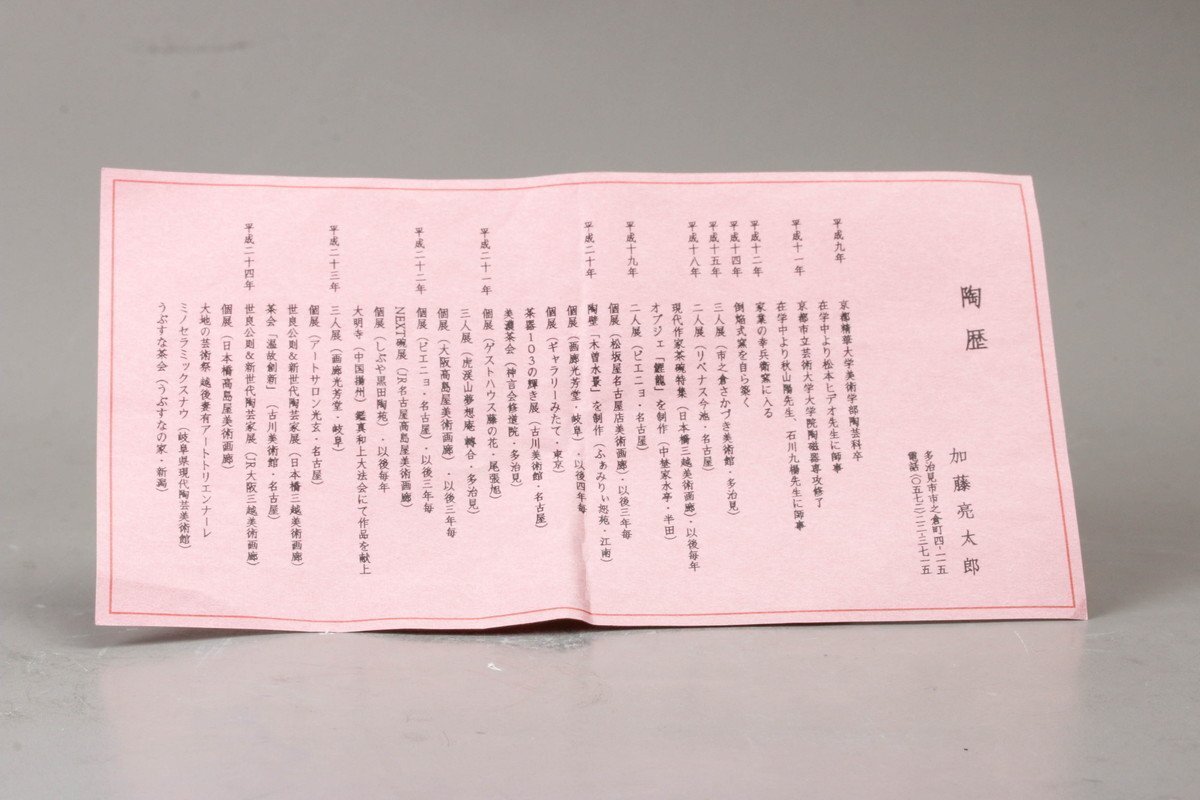 陶歴
加藤亮太郎
多治見市市之倉町四-一一五
電話(〇五七二)二二-三七一五
平成九年 京都精華大学美術学部陶芸科卒
在学中より松本ヒデオ先生に師事
平成十一年 京都市立芸術大学大学院陶磁器専攻修了
在学中より秋山陽先生、石川九楊先生に師事
平成十二年 家業の幸兵衛窯に入る
平成十四年 倒焔式窯を自ら築く
平成十五年 三人展(市之倉さかづき美術館・多治見)
平成十八年 二人展(リベナス今池・名古屋)
現代作家茶碗特集(日本橋三越美術画廊)・以後毎年
オブジェ「鯉龍」を制作(中埜家水亭・半田)
平成十九年 二人展(ピエニョ・名古屋)
個展(松坂屋名古屋店美術画廊)・以後三年毎
平成二十年 陶壁「木曽水景」を制作(ふぁみりぃ悠苑・江南)
個展(画廊光芳堂・岐阜)・以後四年毎
個展(ギャラリーみたて・東京)
茶器103の輝き展(古川美術館・名古屋)
美濃茶会(神言会修道院・多治見)
平成二十一年 個展(ゲストハウス藤の花・尾張旭)
三人展(虎渓山夢想庵 轉合・多治見)
個展(大阪髙島屋美術画廊)・以後三年毎
平成二十二年 個展(ピエニョ・名古屋)・以後三年毎
NEXT碗展(JR名古屋髙島屋美術画廊)
個展(しぶや黒田陶苑)・以後毎年
大明寺(中国揚州)鑑真和上大法会にて作品を献上
平成二十三年 三人展(画廊光芳堂・岐阜)
個展(アートサロン光玄・名古屋)
世良公則&新世代陶芸家展(日本橋三越美術画廊)
茶会「温故創新」(古川美術館・名古屋)
平成二十四年 世良公則&新世代陶芸家展(JR大阪三越美術画廊)
個展(日本橋髙島屋美術画廊)
大地の芸術祭 越後妻有アートトリエンナーレ
ミノセラミックスナウ(岐阜県現代陶芸美術館)
うぶすな茶会(うぶすなの家・新潟)